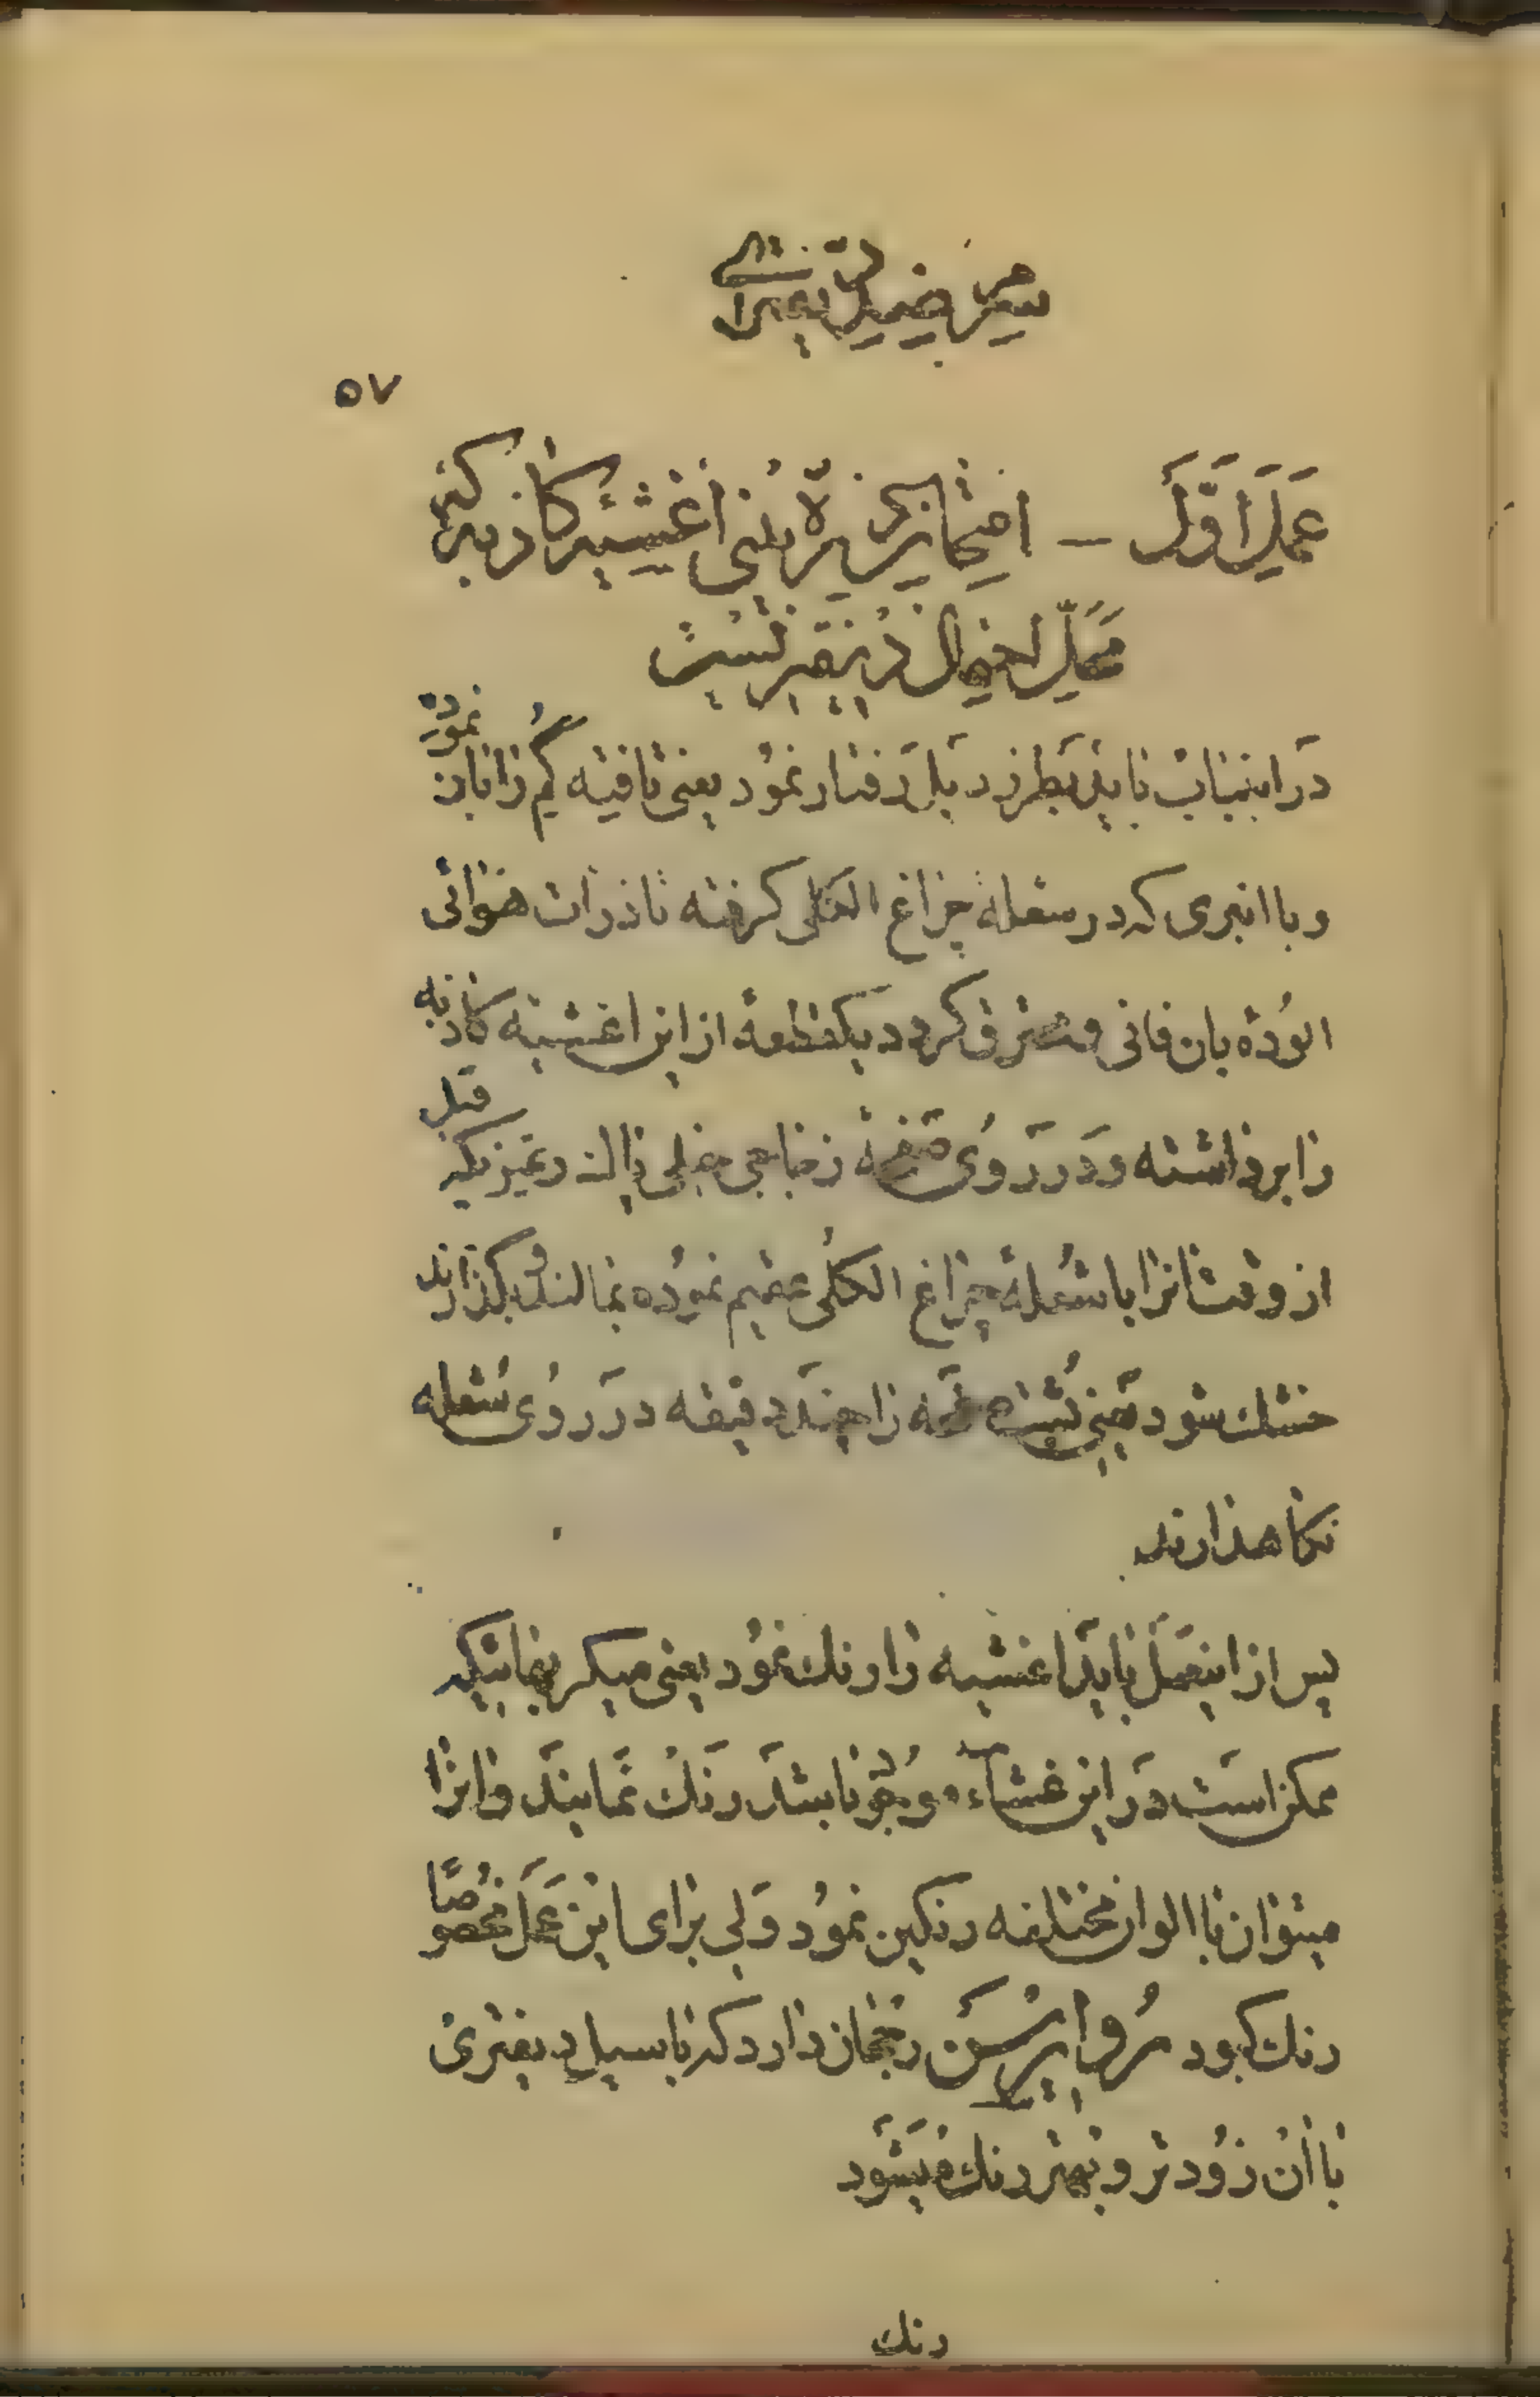 مرض دیفتری
۵۷
عمل اول – امتحان ذره بینی اغشیه کاذبه که
محل احتمال دیفتریست
در اینباب باید بطرز ذیل رفتار نمود یعنی قافیه کم را باز نموده
و با انبری که در شعله چراغ الکلی گرفته تا ذرات هوائی
الوده بان فانی و محترق کردد یکقطعه از این اغشیه کاذبه
را برداشته و در روی صفحهٔ زجاجی خیلی پاک و تمیز که قبل
از وقت انرا با شعلهٔ چراغ الکلی عقیم نموده بمالند و بگذارند
خشک شود یعنی شیشه را چند دقیقه در روی شعله
نکاهدارند
پس از اینعمل باید اغشیه را رنک نمود یعنی میکربهائیکه
ممکن است در این غشاء موجود باشد رنک نمایند و انرا
میتوان با الوان مختلفه رنکین نمود ولی برای این عمل مخصوصاً
رنک کبود رجحان دارد که باسیل دیفتری
با ان زودتر و بهتر رنک میشود
رنک